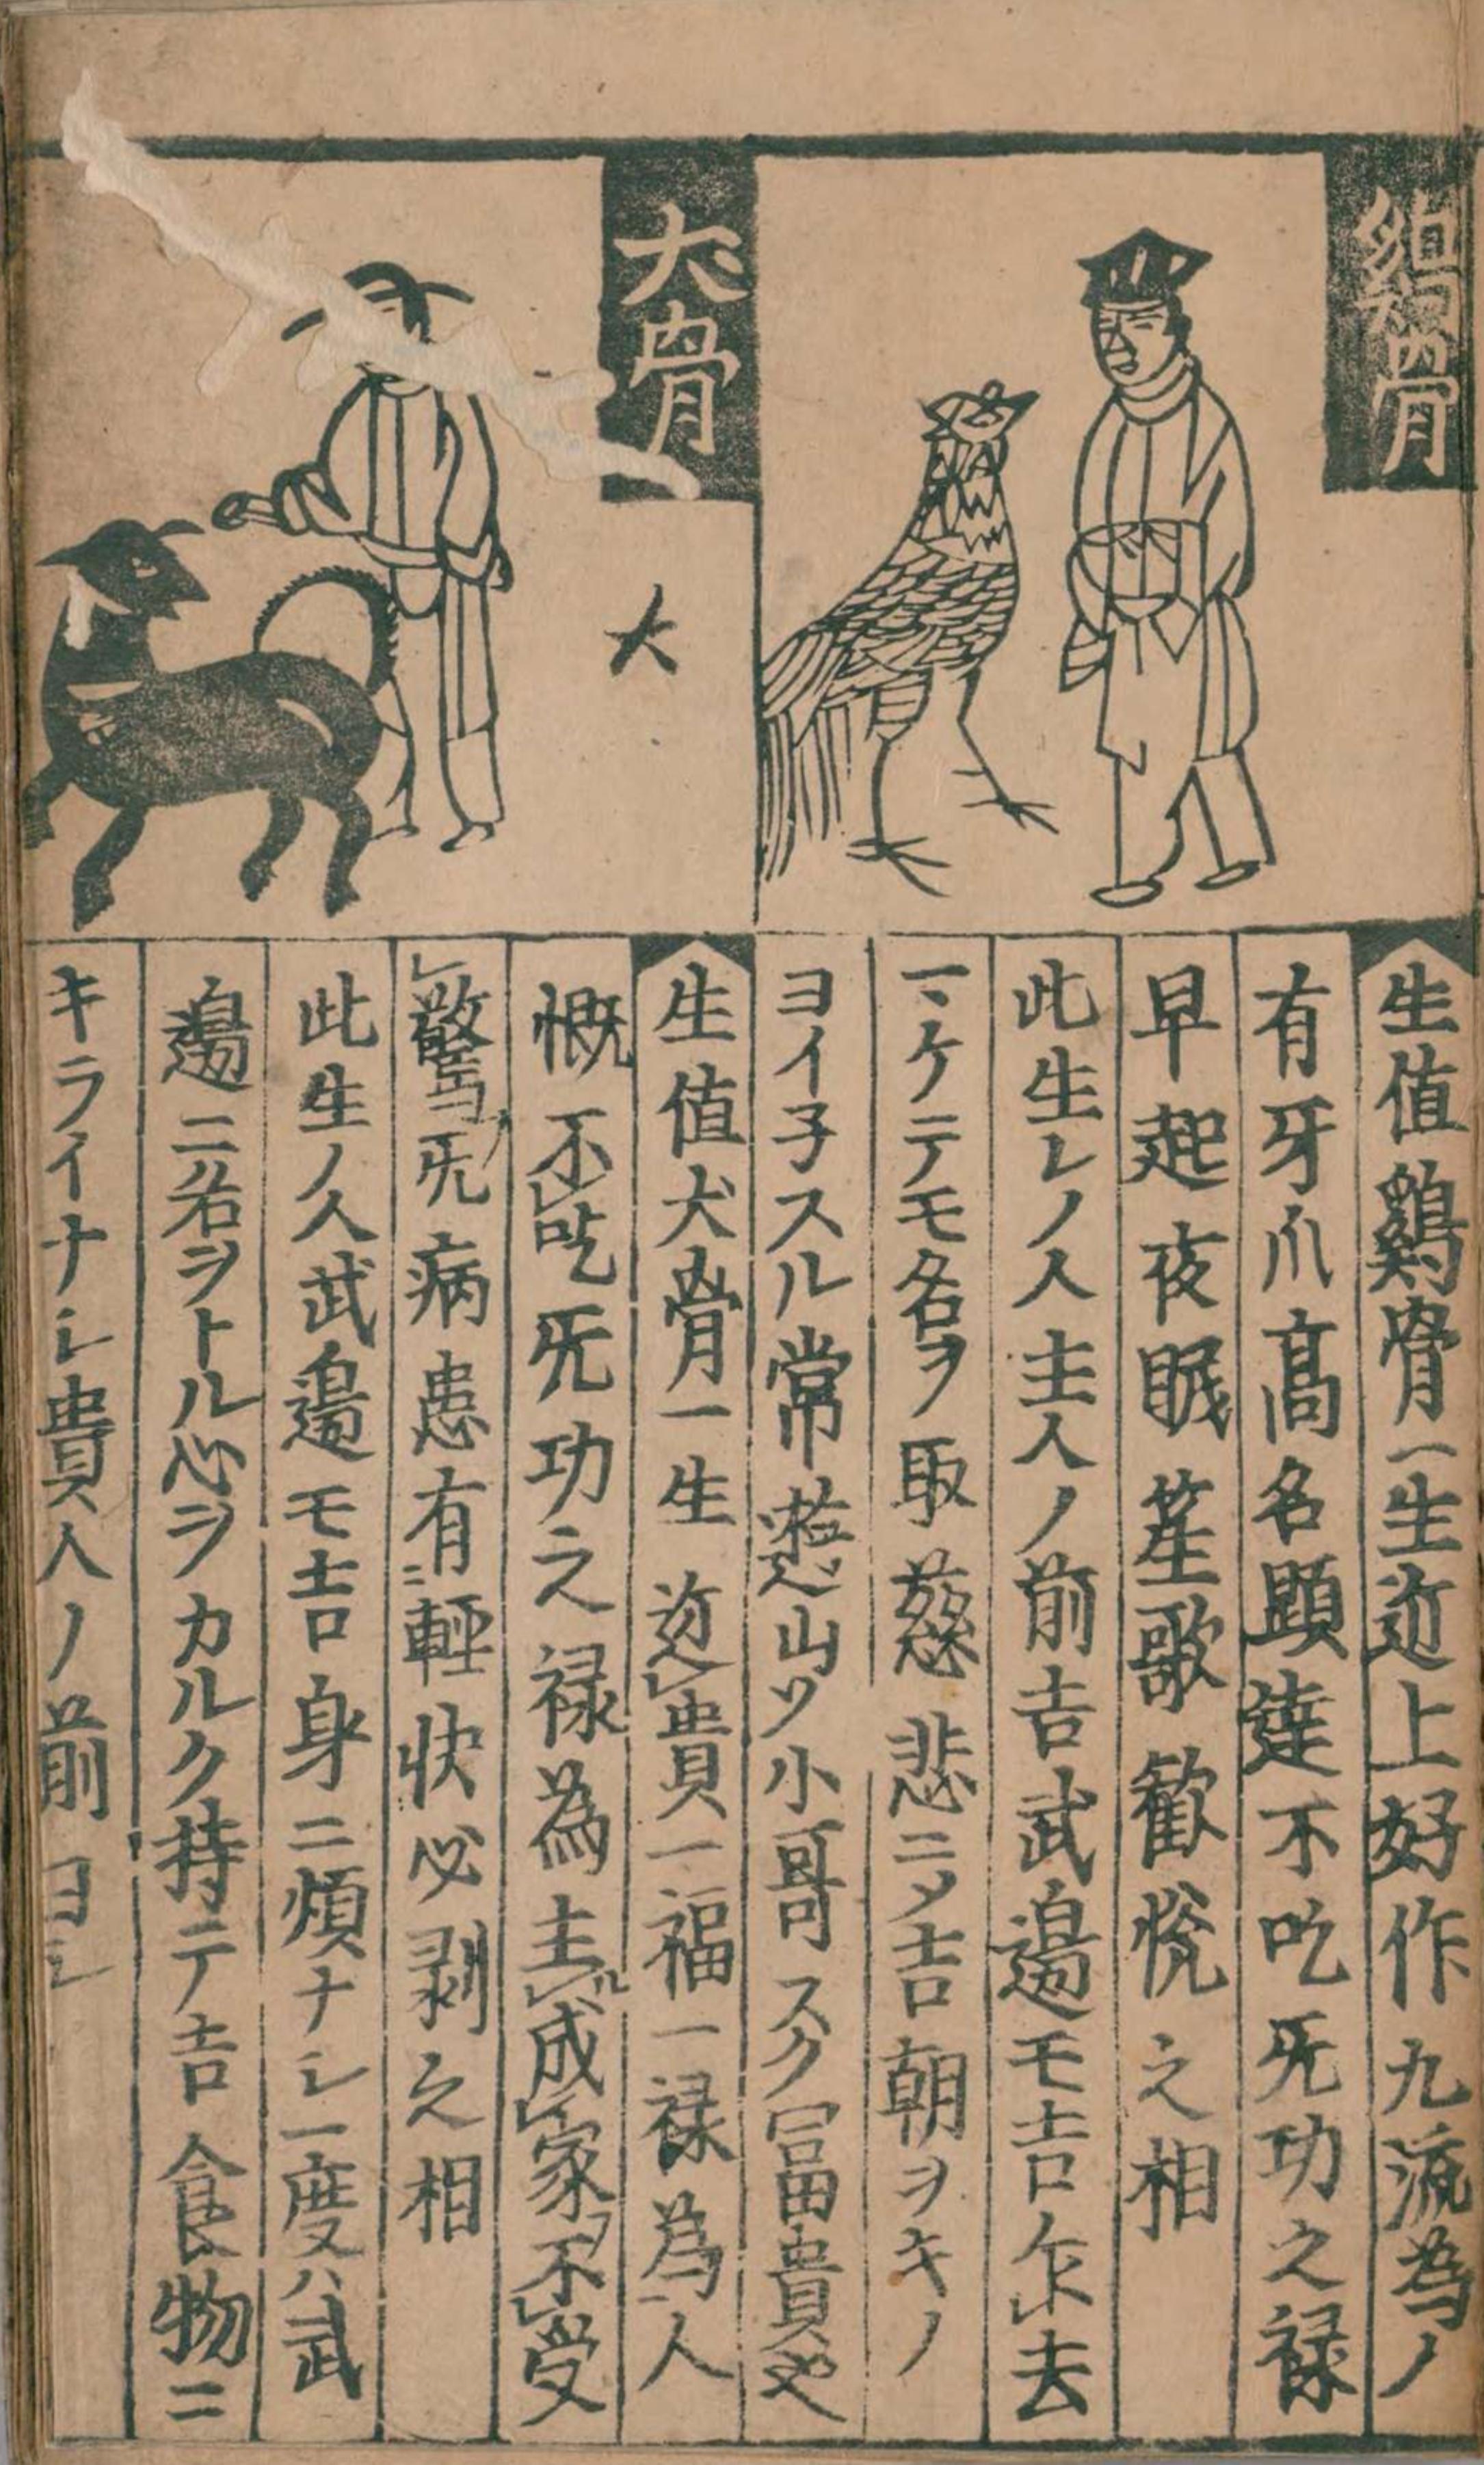 鷄骨
犬骨
犬
生值鷄骨一生近上好作九流為ノ
有牙爪髙名顕達不吃旡功之禄
早起夜眠笙歌歓悦之相
此生レノ人主人ノ前吉武邉モ吉乍去
マケテモ名ヲ取慈悲ニ〆吉朝ヲキノ
ヨイ子スル常遊山ツ小哥スク冨貴也
生值犬骨一生近貴一福一禄為人
慨不吃旡功之禄為主成家不受
驚旡病患有輕快必剥之相
此生ノ人武邉モ吉身ニ煩ナシ一度ハ武
邉ニ名ヲトル心ヲカルク持テ吉食物ニ
キライナシ貴人ノ前ヨシ